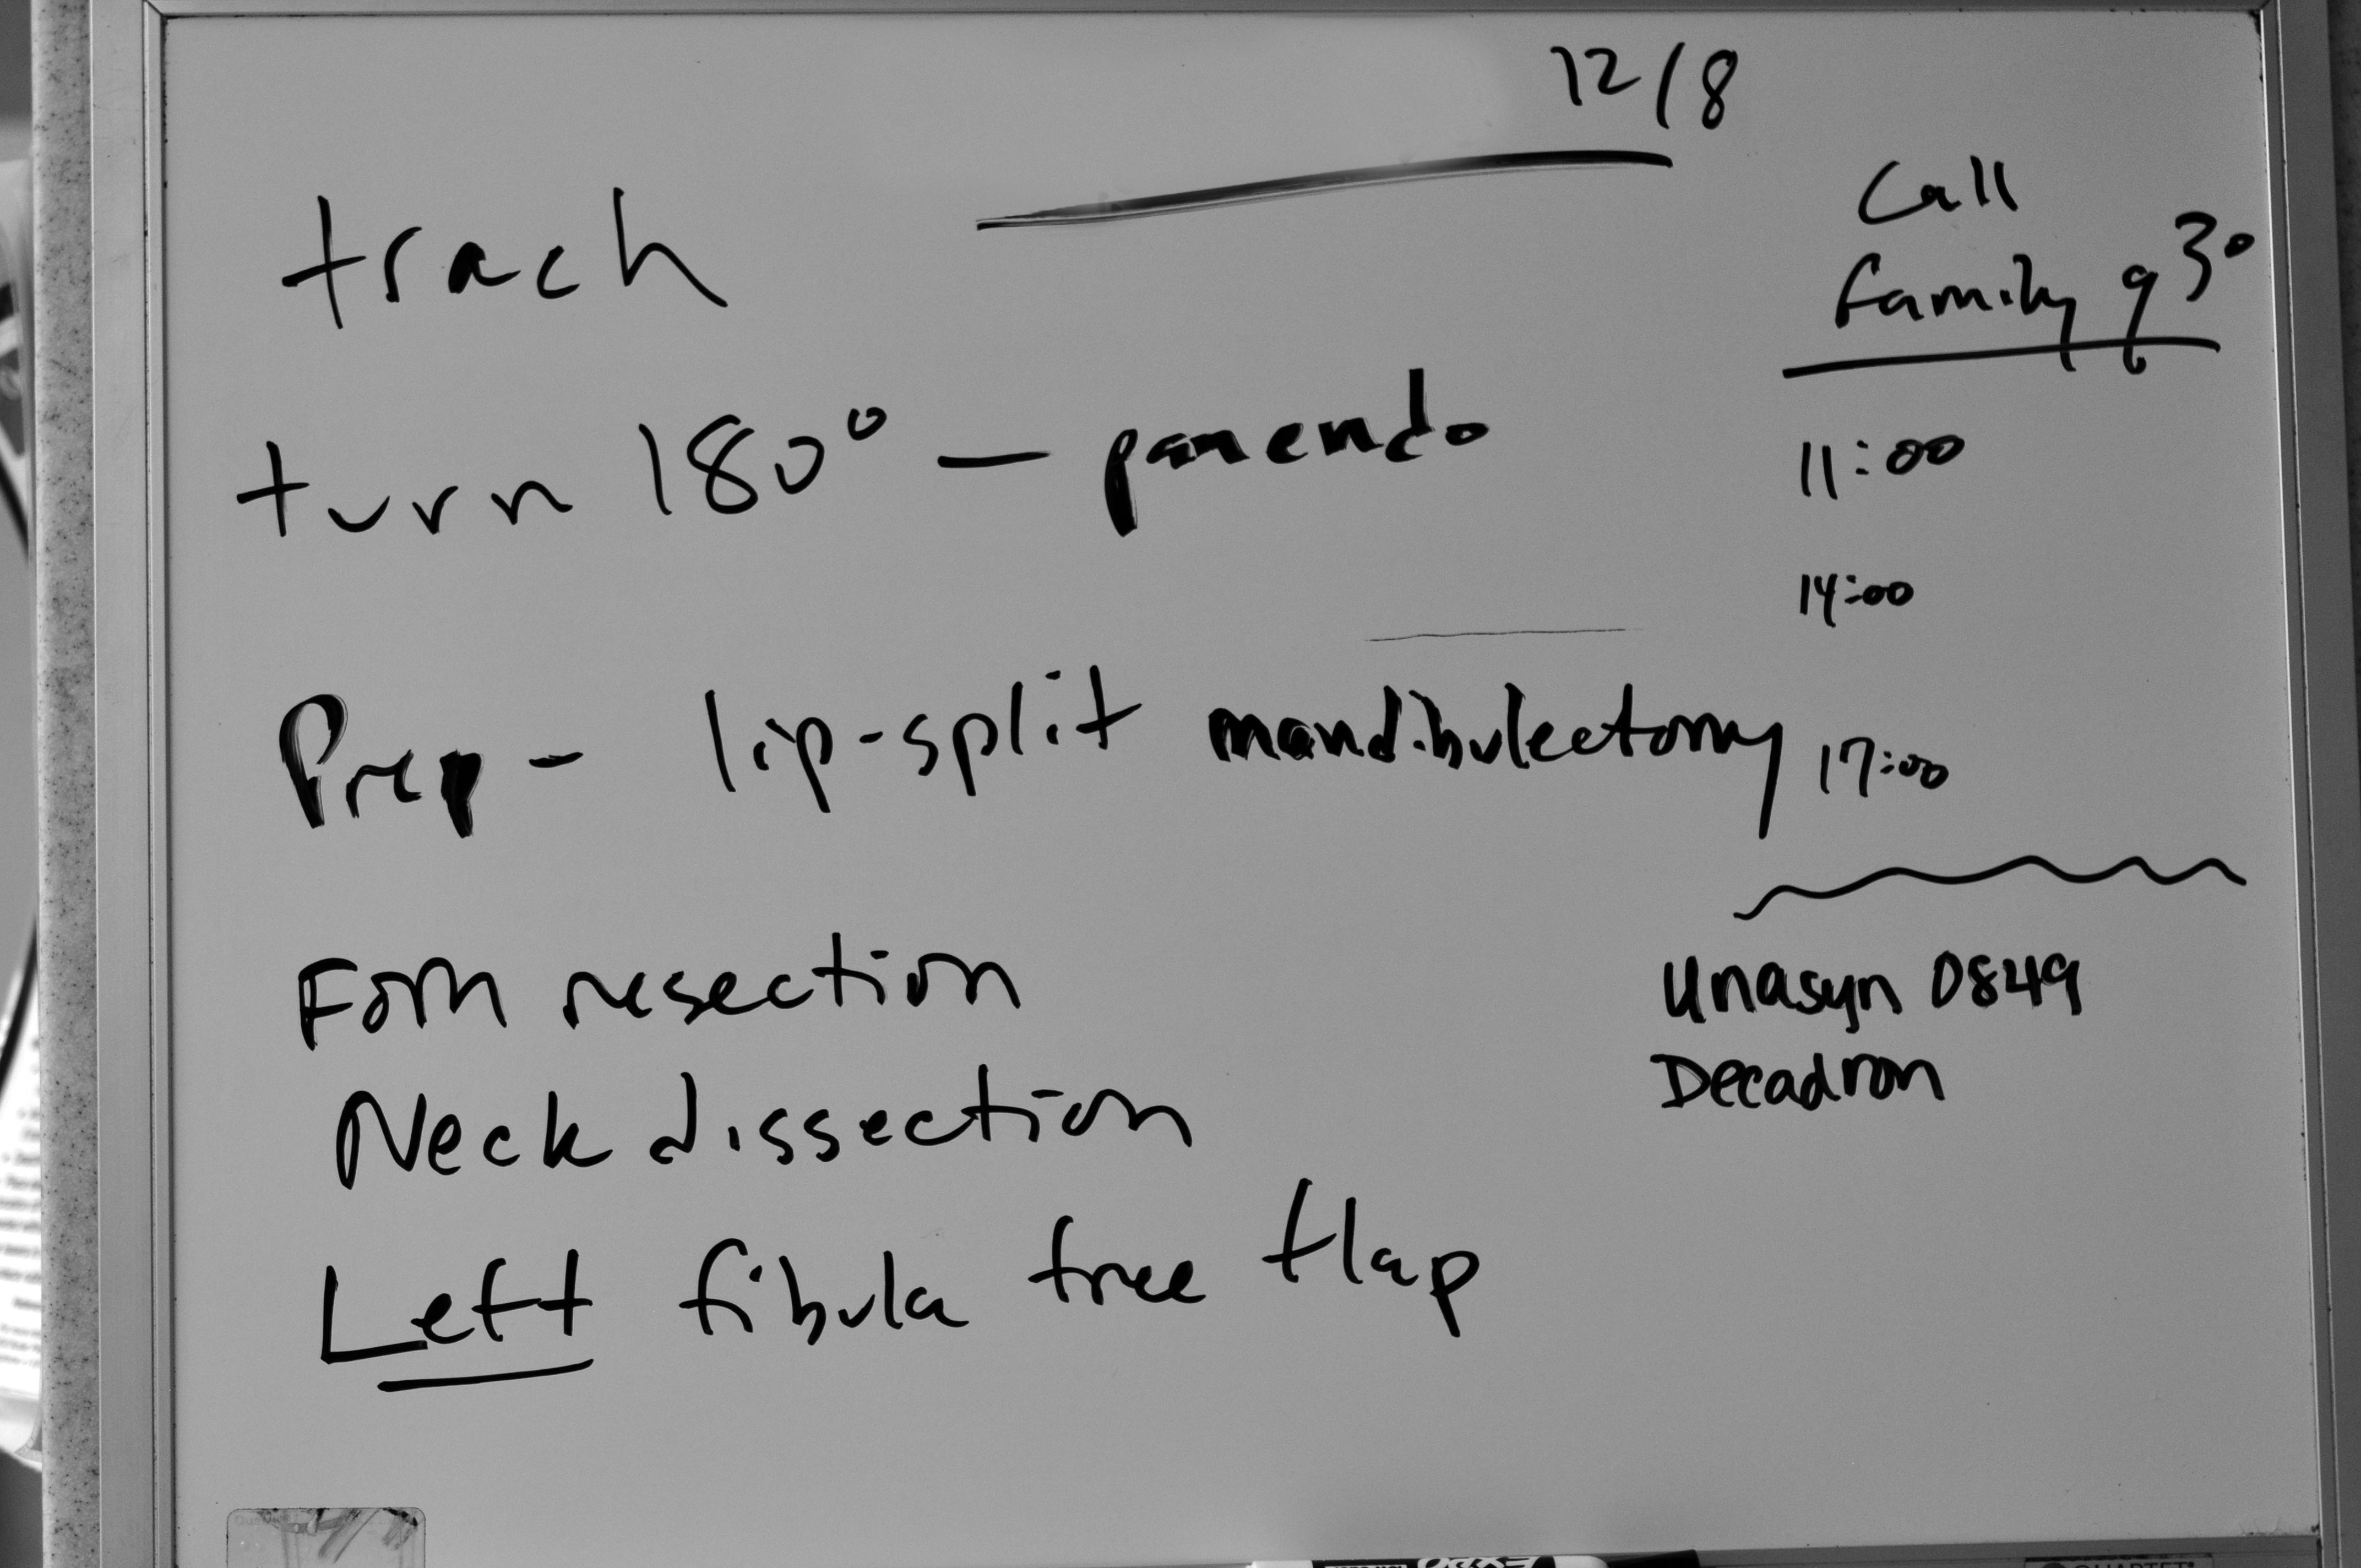 12/8
trach
turn 180° — panendo
Prep - lip-split mandibulectomy
Fom resection
Neck dissection
Left fibula free flap
Call
family q 3°
11:00
14:00
17:00
Unasyn 0849
Decadron
EXPO
QUARTET